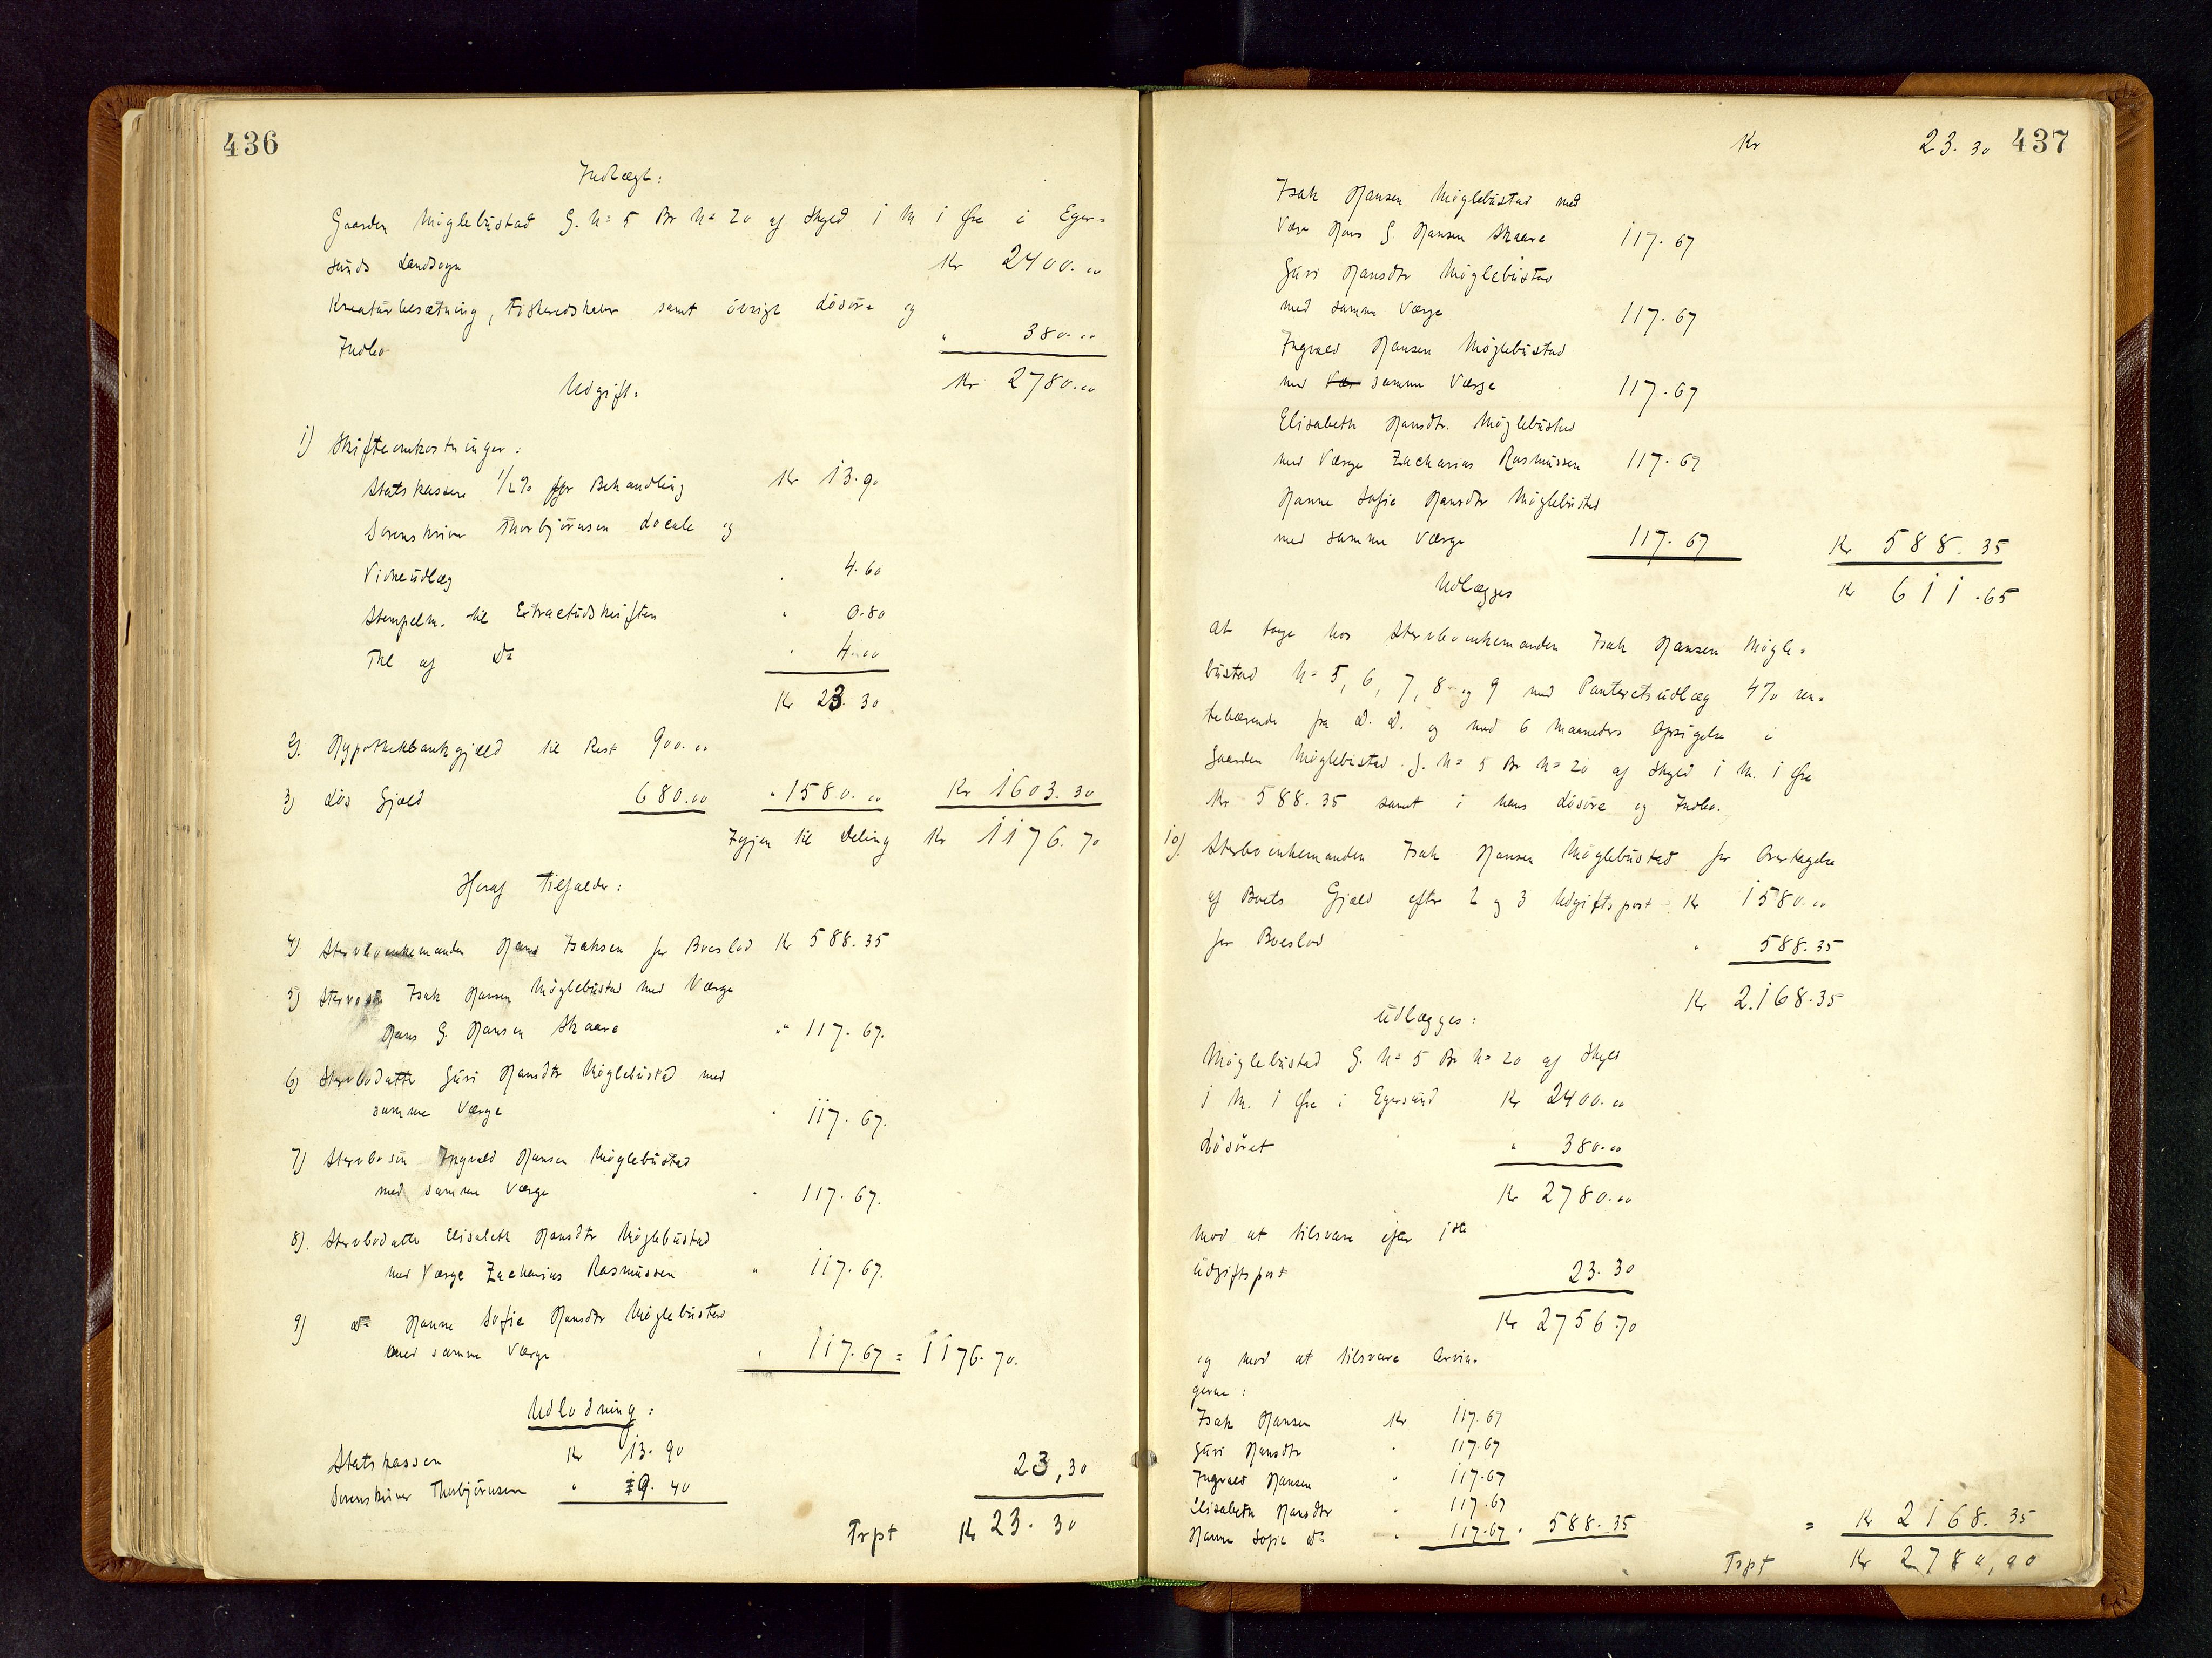 436
Indtægt:
Gaarden Möglebustad G. No 5 Br No 20 af Skyld 1 M 1 Øre i Eger-
sunds Landsogn Kr 2400.00
Kreaturbesætning, Fiskeredskaber samt övrige Lösöre og
Indbo " 380.00
Udgift. Kr 2780.00
1) Skifteomkostninger:
Statskassen 1/2 % for Behandling Kr 13.90
Sorenskriver Thorbjörnsen Locale og
Vidneudlæg " 4.60
Stempelm. til Extractudskriften " 0.80
Thl af Do " 4.00
Kr 23.30
2) Hypothekbankgjæld til Rest 900.00
3) Lös Gjæld 680.00 " 1580.00 Kr 1603.30
Igjen til Deling Kr 1176.70
Heraf tilfalder:
4) Stervboenkemanden Hans Isaksen for Boeslod Kr 588.35
5) Stervbosön Isak Hansen Möglebustad med Værge
Hans G. Hansen Skaare " 117.67.
6) Stervbodatter Guri Hansdtr Möglebustad med
samme Værge " 117.67.
7) Stervbosön Ingvald Hansen Möglebustad
med samme Værge " 117.67.
8) Stervbodatter Elisabeth Hansdtr Möglebustad
med Værge Zacharias Rasmussen " 117.67.
9) Do Hanne Sofie Hansdtr Möglebustad
med samme Værge " 117.67 = 1176.70.
Udlodning:
Statskassen Kr 13.90
Sorenskriver Thorbjörnsen " 9.40 23,30
Trpt Kr 23.30
Kr 23.30 437
Isak Hansen Möglebustad med
Værge Hans G. Hansen Skaare 117.67
Guri Hansdtr Möglebustad
med samme Værge 117.67
Ingvald Hansen Möglebustad
med Vær samme Værge 117.67
Elisabeth Hansdtr. Möglebustad
med Værge Zacharias Rasmussen 117.67
Hanne Sofie Hansdtr Möglebustad
med samme Værge 117.67 Kr 588.35
Udlægges Kr 611.65
at tage hos Stervboenkemanden Isak Hansen Mögle-
bustad No 5, 6, 7, 8 og 9 med Panteretsudlæg 4% ren-
tebærende fra D. D. og med 6 Maaneders Opsigelse i
Gaarden Möglebustad G. No 5 Br No 20 af Skyld 1 M. 1 Øre
Kr 588.35 samt i hans Lösöre og Indbo.
10) Stervboenkemanden Isak Hansen Möglebustad for Overtagelse
af Boets Gjæld efter 2 og 3 Udgiftspost Kr 1580.00
for Boeslod " 588.35
Kr 2.168.35
udlægges:
Möglebustad G. No 5 Br No 20 af Skyld
1 M. 1 Øre i Egersund Kr 2400.00
Lösöret " 380.00
Kr 2780.00
mod at tilsvare efter 1ste
Udgiftspost 23.30
Kr 2756.70
og mod at tilsvare Arvin-
gerne:
Isak Hansen Kr 117.67
Guri Hansdtr " 117.67
Ingvald Hansen " 117.67
Elisabeth Hansdtr " 117.67
Hanne Sofie Do " 117.67 " 588.35 = Kr 2168.35
Trpt Kr 2780,00